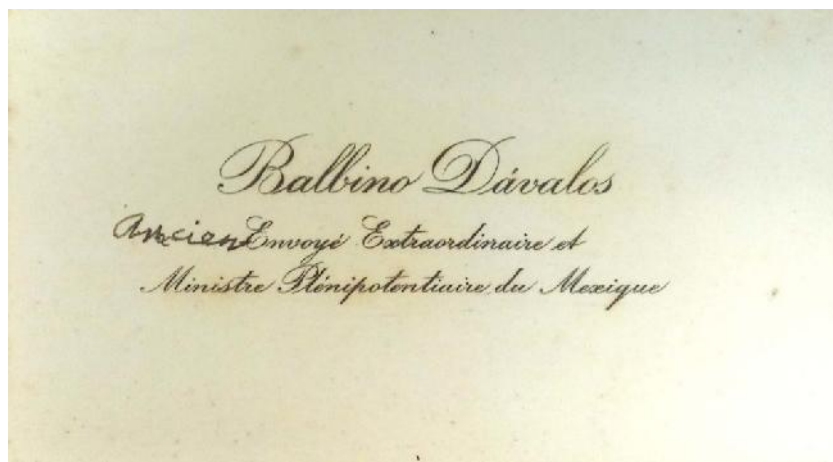 Balbino Dávalos
Ancien Envoyé Extraordinaire et
Ministre Plénipotentiaire du Mexique